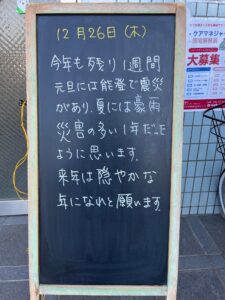 12月26日(木)
今年も残り1週間
元旦には能登で震災
があり、夏には豪雨
災害の多い1年だった
ように思います。
来年は穏やかな
年になれと願います。
・ケアマネジャ
大募集